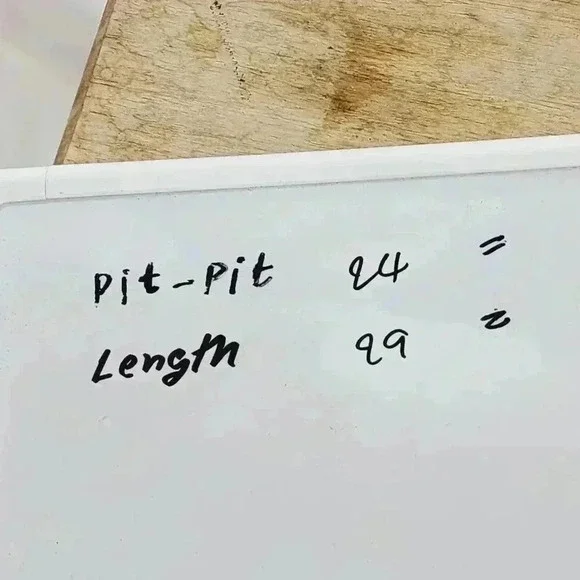 Pit-Pit 24 "
Length 29 "